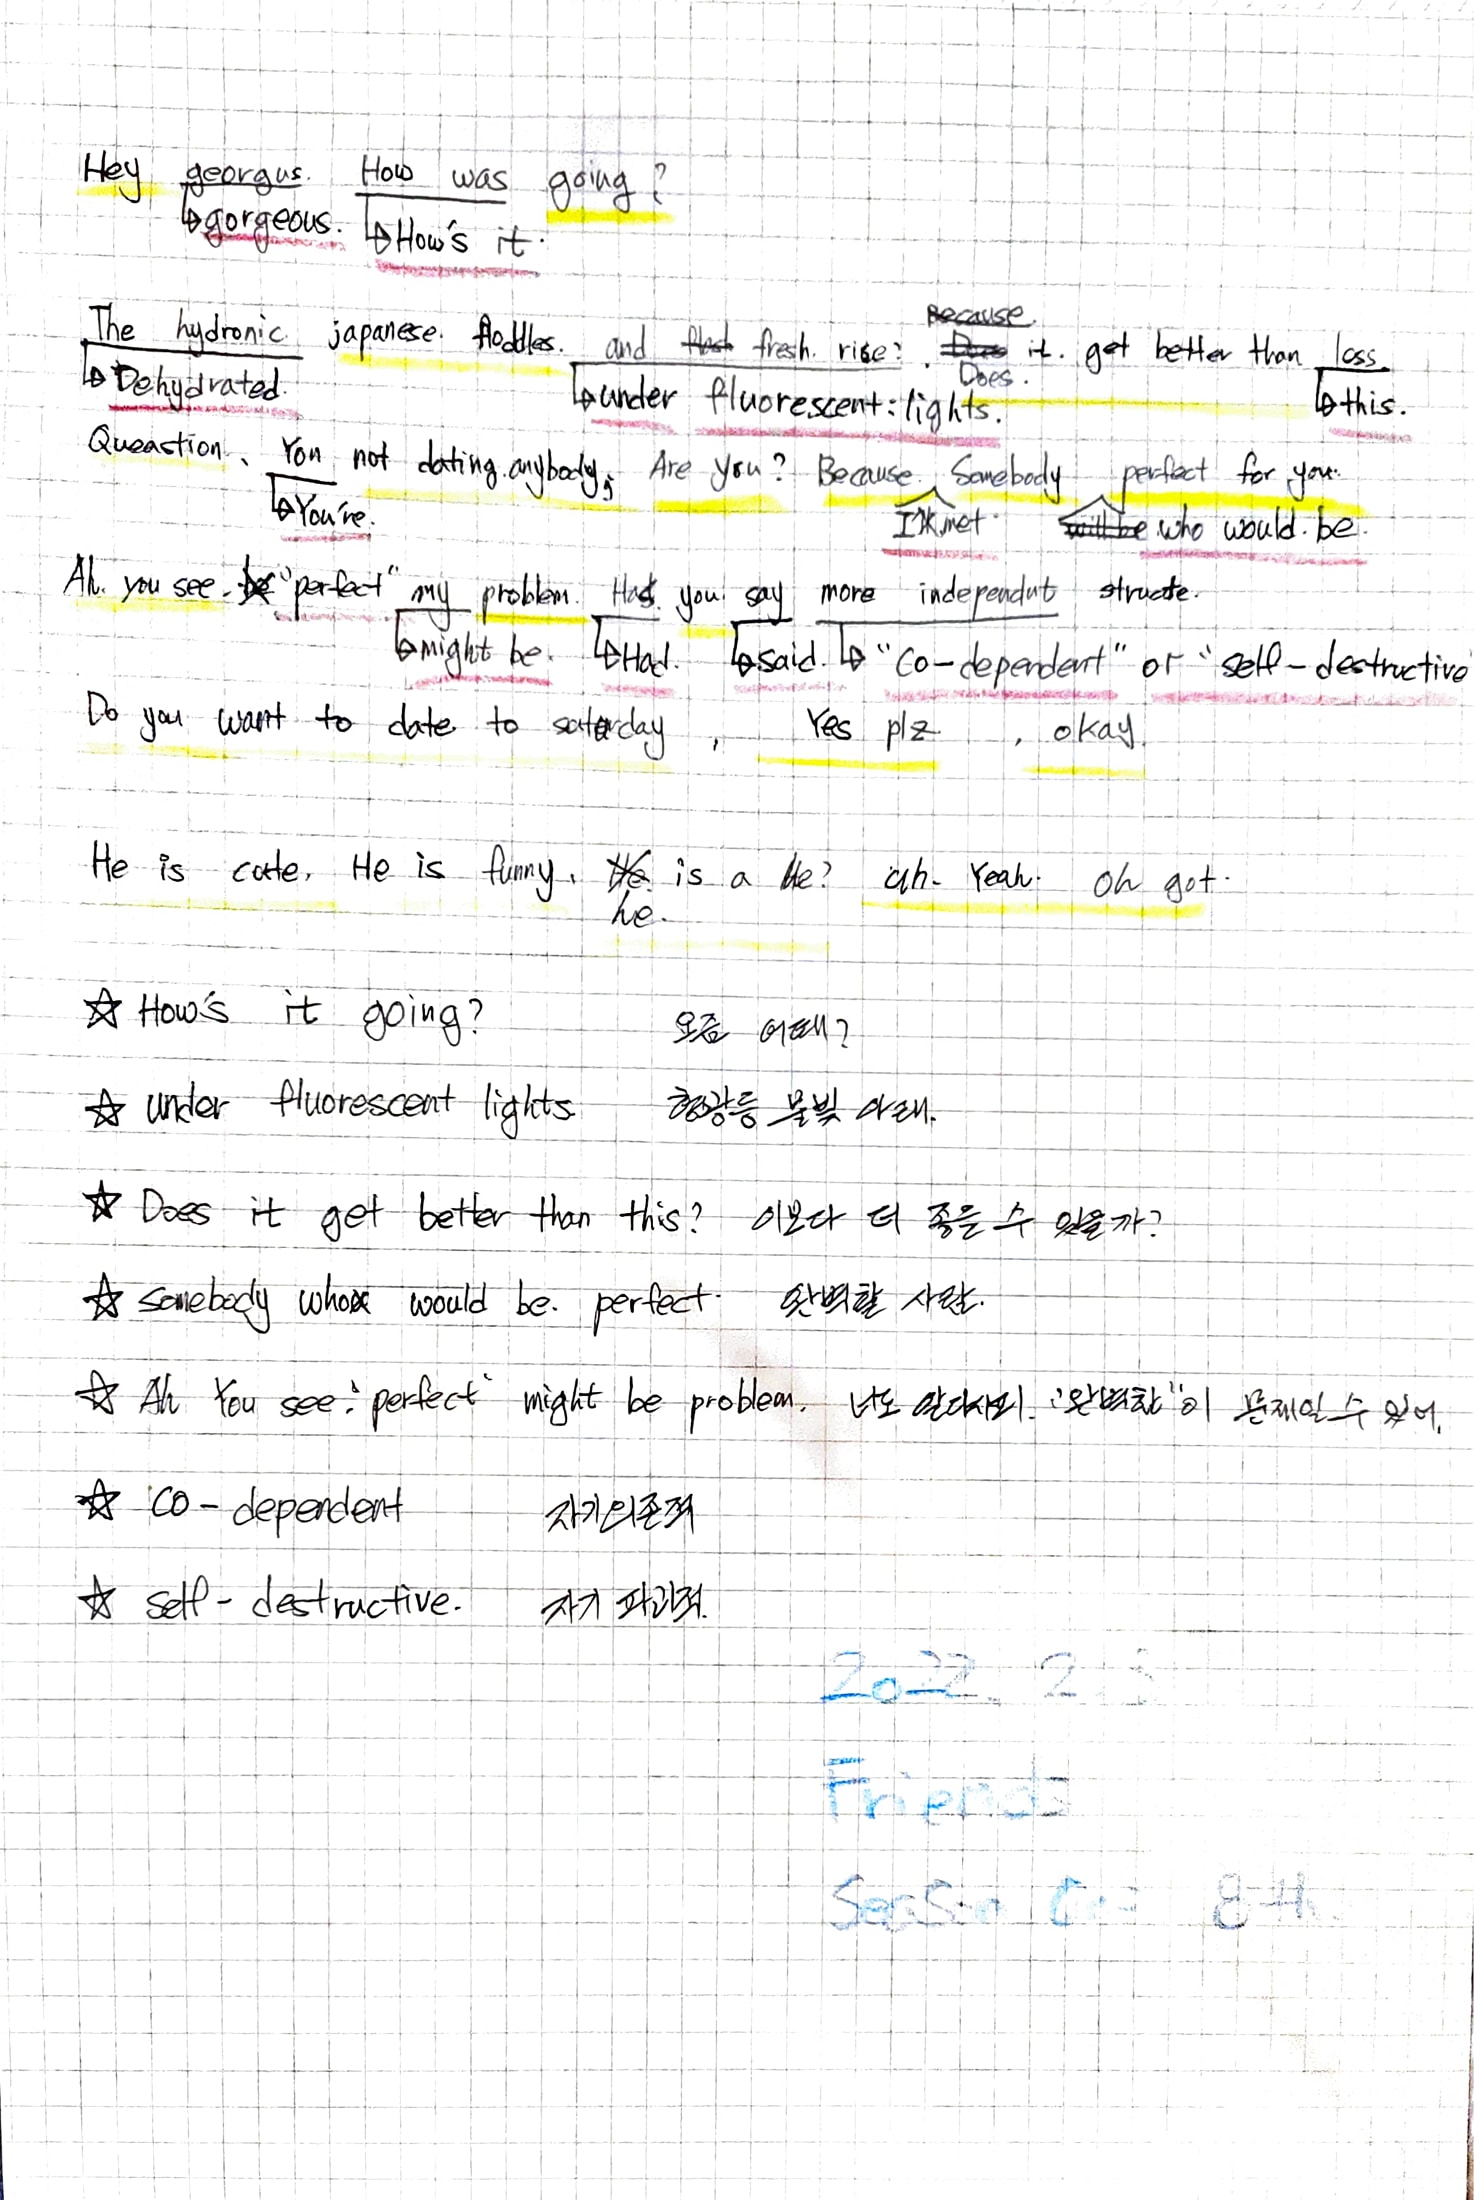 Hey georgus. How was going?
gorgeous. How's it.
Because.
The hydronic japanese. floddles. and fresh. rise? it. get better than loss
Does.
Dehydrated. under fluorescent: lights. this.
Queastion. You not dating. anybody, Are you? Because. Somebody perfect for you.
You're. met. who would be.
Ah. you see. "perfect" my problem. Has you say more independut structe.
might be. Had. said. "co-dependent" or "self-destructive
Do you want to date to saturday, Yes plz, okay.
He is cute. He is funny. is a He? uh. Yeah. Oh got.
he.
☆ How's it going? 요즘 어때?
☆ under fluorescent lights 형광등 불빛 아래.
☆ Does it get better than this? 이보다 더 좋을 수 있을까?
☆ somebody who would be. perfect. 완벽할 사람.
☆ Ah You see "perfect" might be problem. 너도 알다시피. "완벽함"이 문제일 수 있어.
☆ co-dependent 자기의존적
☆ self-destructive. 자기 파괴적.
2022. 2. 3
Friends
8th